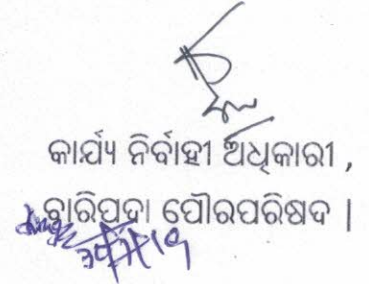 କାର୍ଯ୍ୟ ନିର୍ବାହୀ ଅଧିକାରୀ ,
ବାରିପଦା ପୌରପରିଷଦ |